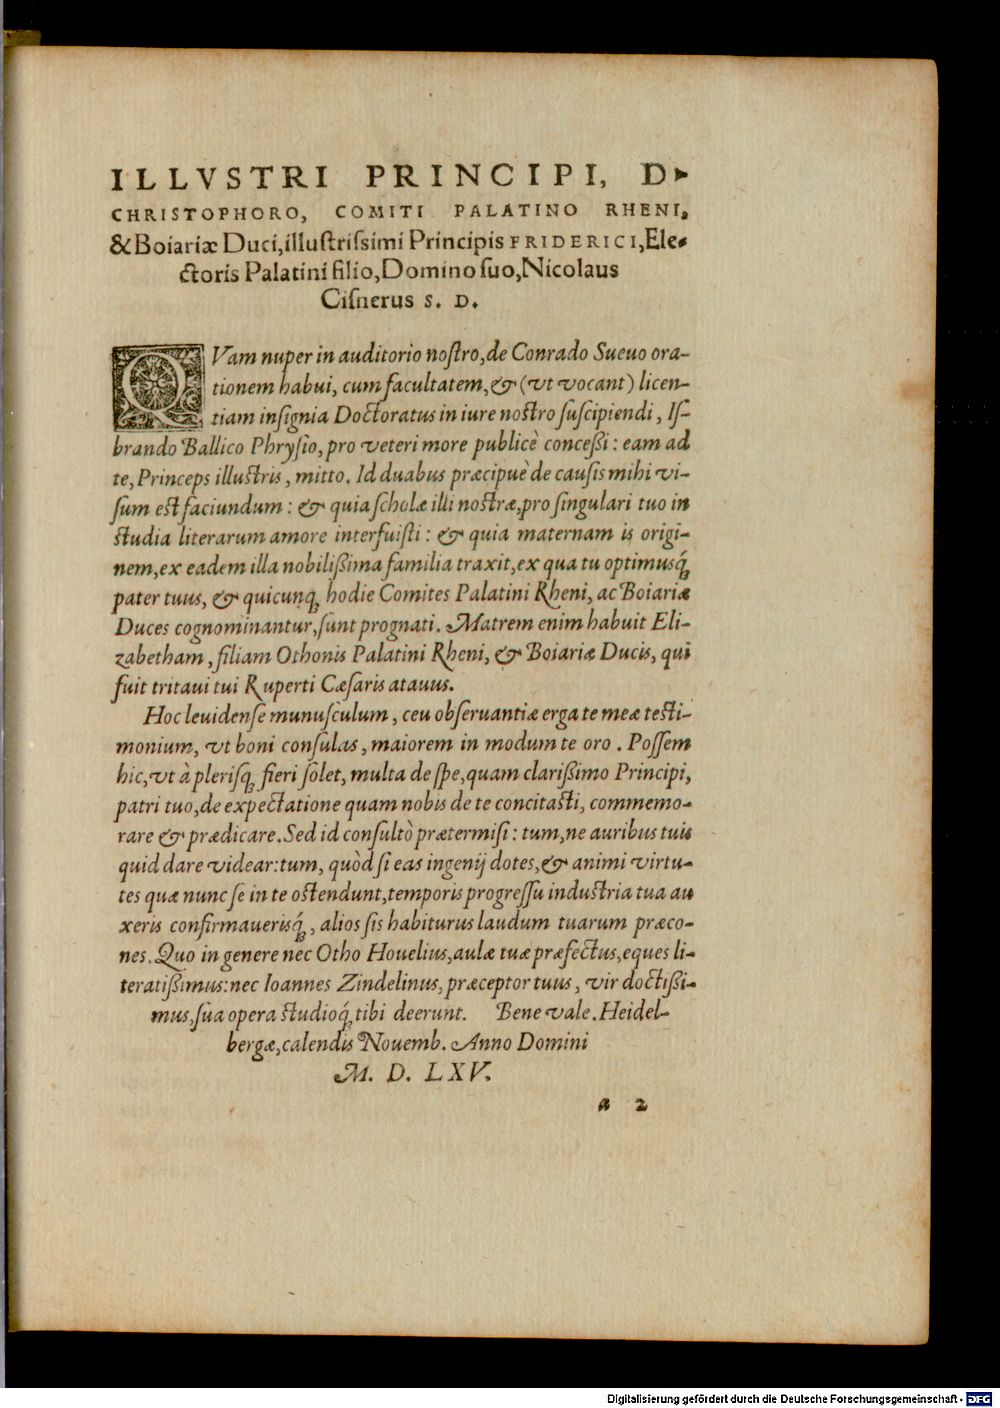 ILLVSTRI PRINCIPI, D.
CHRISTOPHORO, COMITI PALATINO RHENI,
& Boiariæ Duci, illustrissimi Principis FRIDERICI, Ele-
ctoris Palatini filio, Domino suo, Nicolaus
Cisnerus S. D.
QVam nuper in auditorio nostro, de Conrado Sueuo ora-
tionem habui, cum facultatem, & (vt vocant) licen-
tiam insignia Doctoratus in iure nostro suscipiendi, Is-
brando Ballico Phrysio, pro veteri more publicè conceßi: eam ad
te, Princeps illustris, mitto. Id duabus præcipuè de causis mihi vi-
sum est faciundum: & quia scholæ illi nostræ, pro singulari tuo in
studia literarum amore interfuisti: & quia maternam is origi-
nem, ex eadem illa nobilißima familia traxit, ex qua tu optimusq́;
pater tuus, & quicunq; hodie Comites Palatini Rheni, ac Boiariæ
Duces cognominantur, sunt prognati. Matrem enim habuit Eli-
zabetham, filiam Othonis Palatini Rheni, & Boiariæ Ducis, qui
fuit tritaui tui Ruperti Cæsaris atauus.
Hoc leuidense munusculum, ceu obseruantiæ erga te meæ testi-
monium, vt boni consulas, maiorem in modum te oro. Possem
hic, vt à plerisq; fieri solet, multa de spe, quam clarißimo Principi,
patri tuo, de expectatione quam nobis de te concitasti, commemo-
rare & prædicare. Sed id consultò prætermisi: tum, ne auribus tuis
quid dare videar: tum, quòd si eas ingenij dotes, & animi virtu-
tes quæ nunc se in te ostendunt, temporis progressu industria tua au
xeris confirmauerisq́;, alios sis habiturus laudum tuarum præco-
nes. Quo in genere nec Otho Houelius, aulæ tuæ præfectus, eques li-
teratißimus: nec Ioannes Zindelinus, præceptor tuus, vir doctißi-
mus, sua opera studioq́; tibi deerunt. Bene vale. Heidel-
bergæ, calendis Nouemb. Anno Domini
M. D. LXV.
a 2
Digitalisierung gefördert durch die Deutsche Forschungsgemeinschaft - DFG